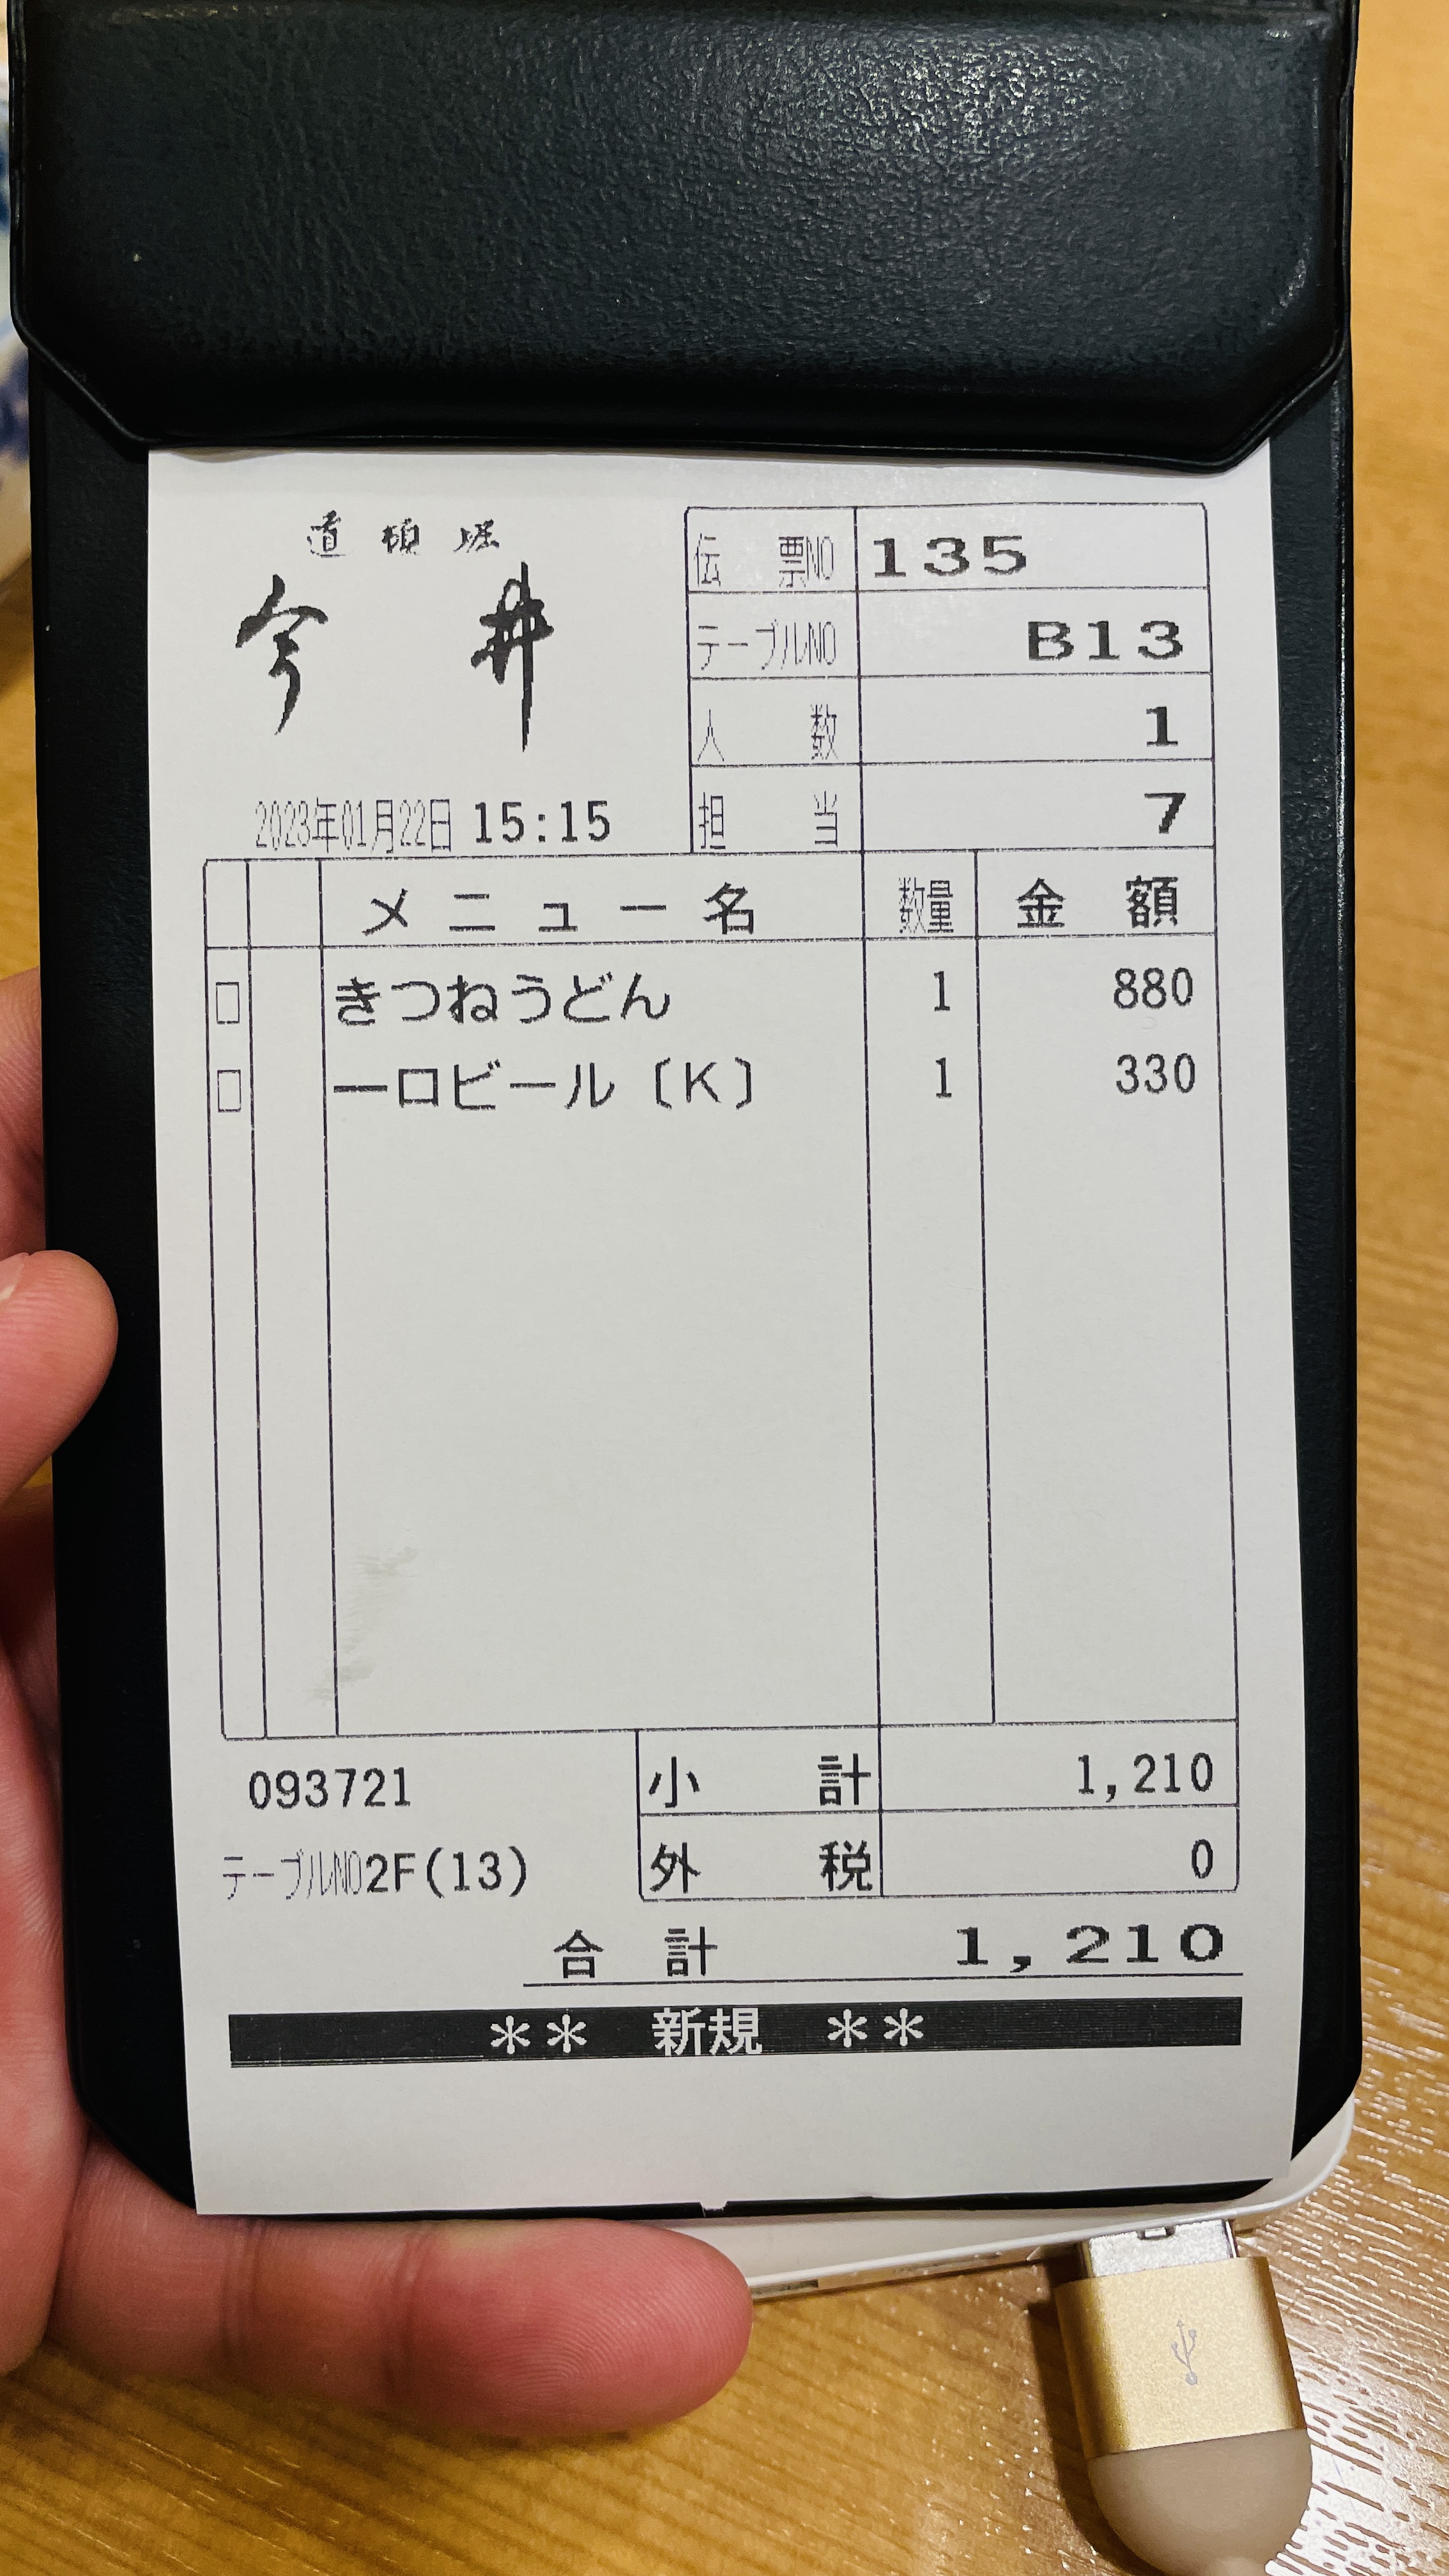 道頓堀
今井
伝票NO 135
テーブルNO B13
人数 1
担当 7
2023年01月22日 15:15
メニュー名 数量 金額
きつねうどん 1 880
一口ビール〔K〕 1 330
093721
小計 1,210
テーブルNO2F(13)
外税 0
合計 1,210
** 新規 **